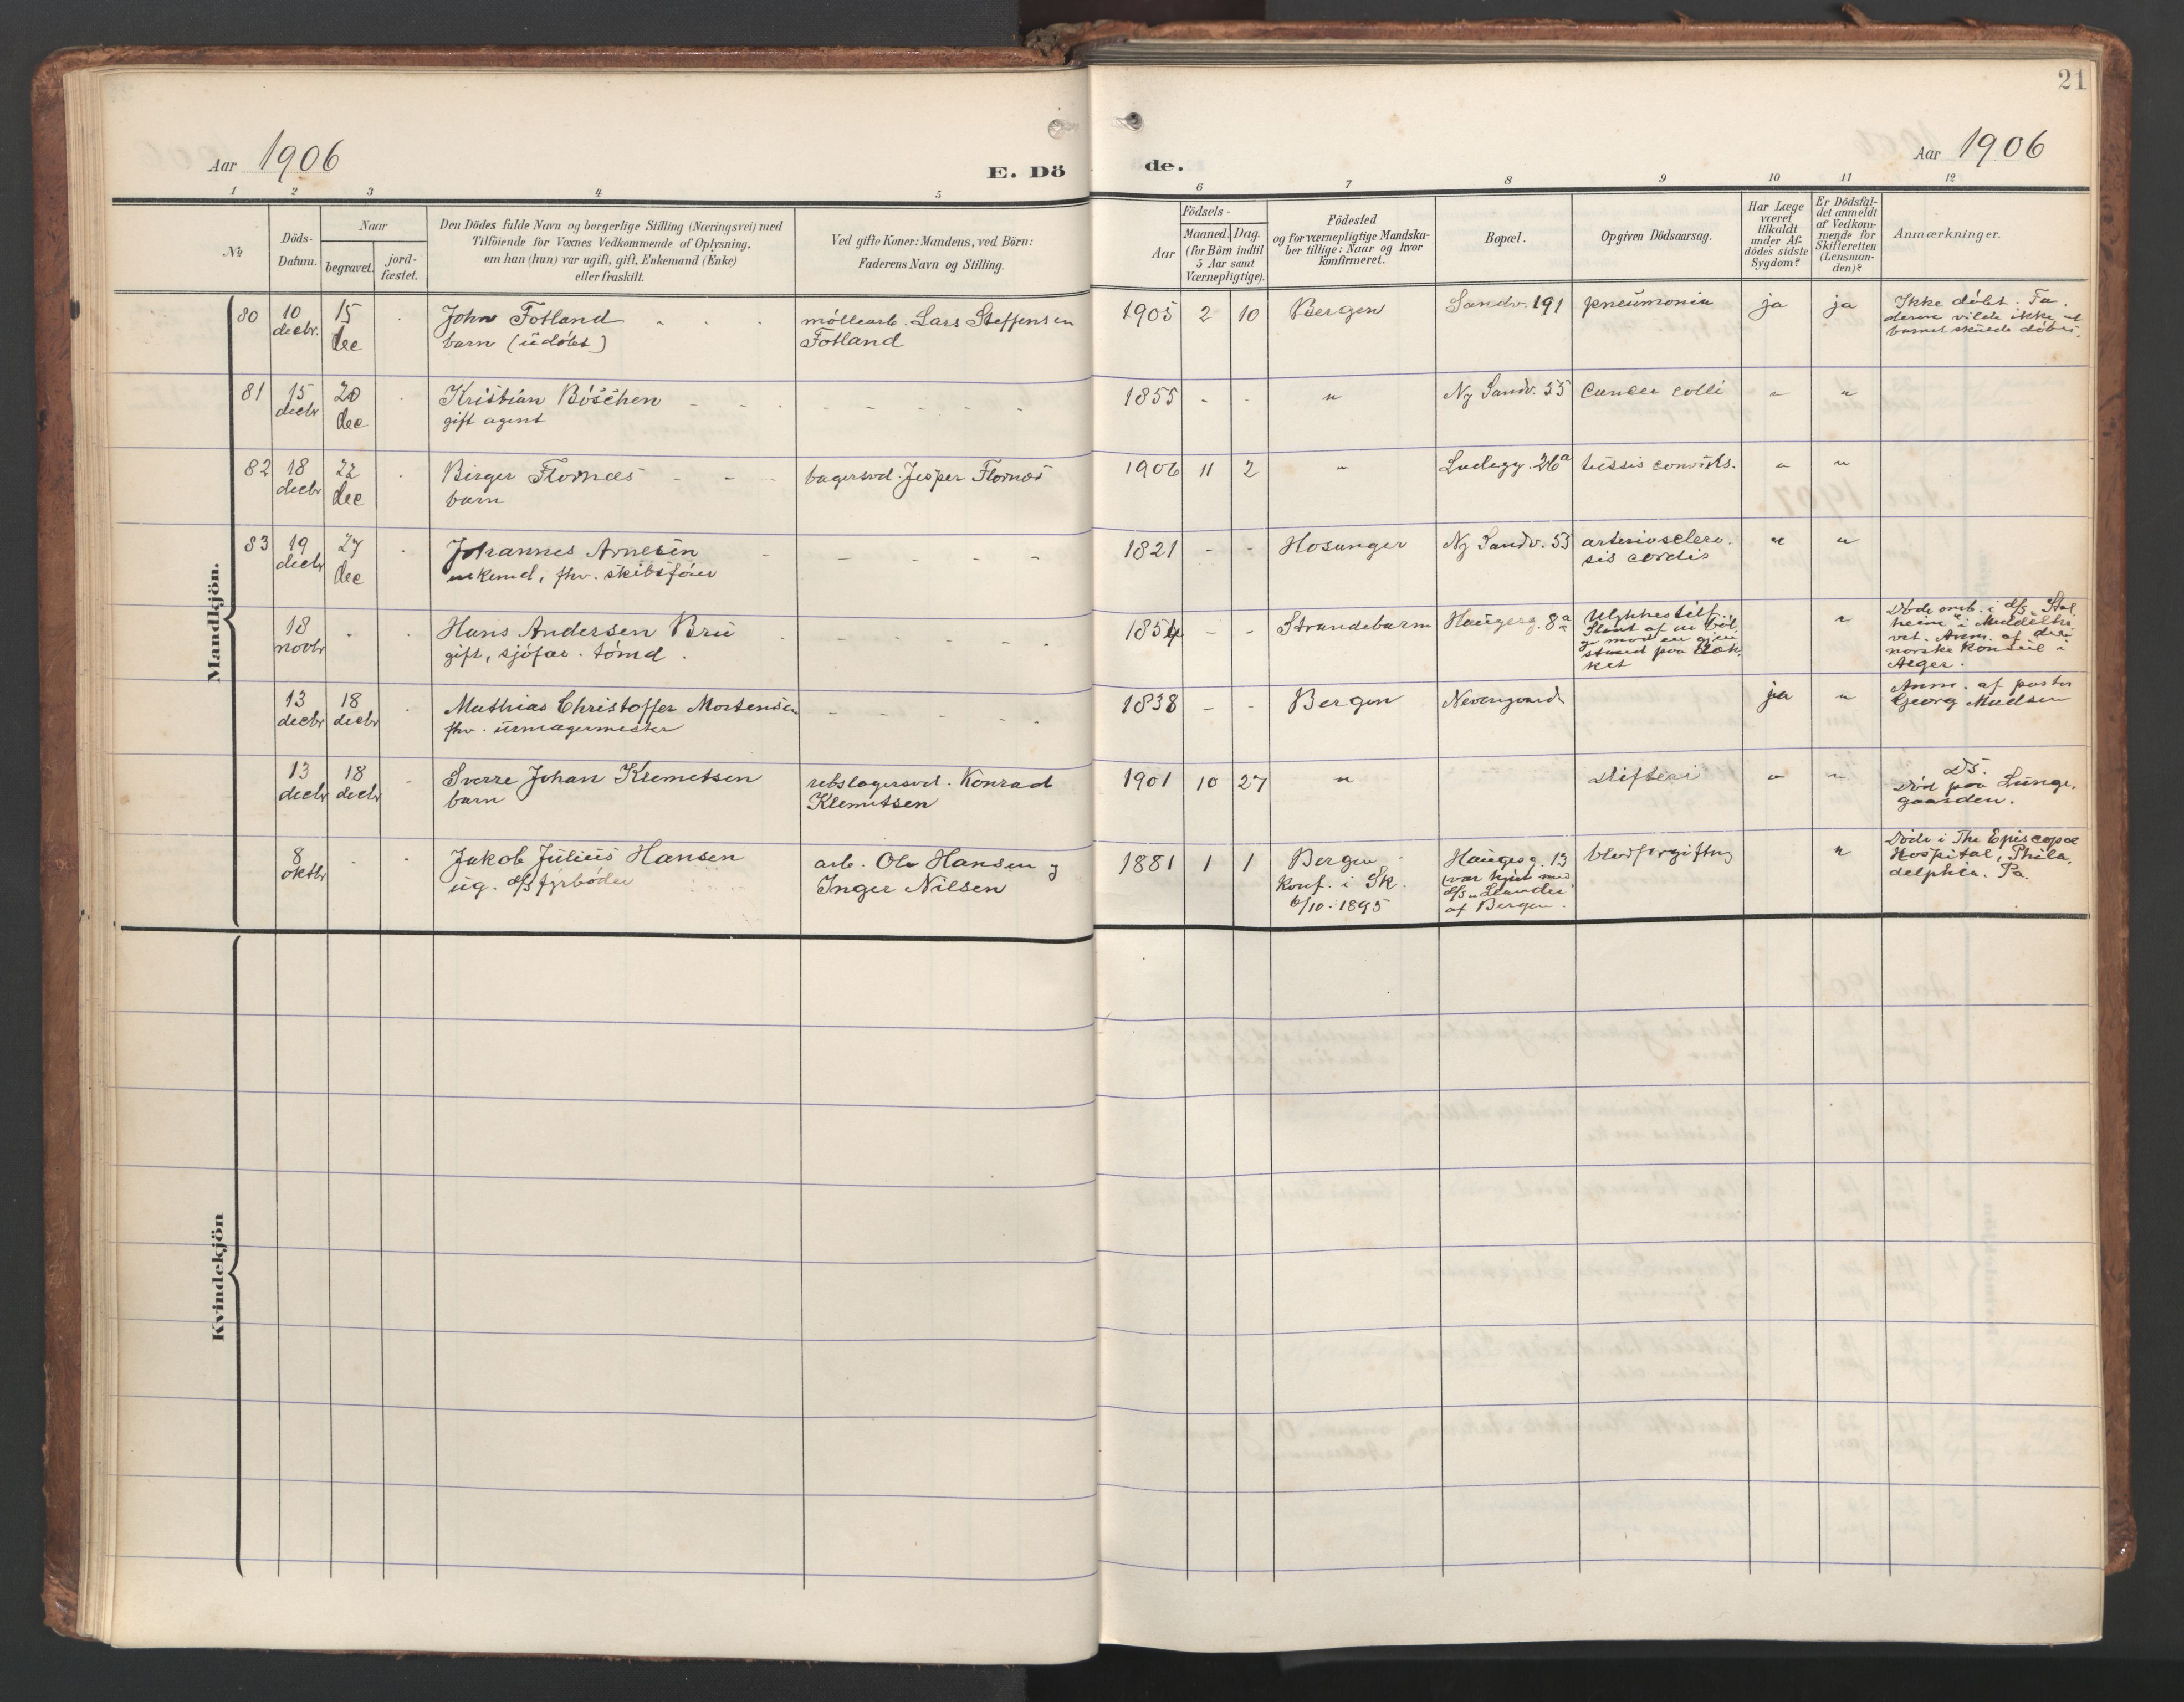 21
Aar 1906
E. Dö
de.
Aar 1906
1 2 3 4 5
6 7 8 9 10 11 12
No
Döds-
Datum.
Naar
begravet.
jord-
fæstet.
Den Dödes fulde Navn og borgerlige Stilling (Næringsvei) med
Tilföiende for Voxnes Vedkommende af Oplysning,
om han (hun) var ugift, gift, Enkemand (Enke)
eller fraskilt.
Ved gifte Koner: Mandens, ved Börn:
Faderens Navn og Stilling.
Födsels-
Aar
Maaned.
Dag.
(for Börn indtil
5 Aar samt
Værnepligtige).
Födested
og for værnepligtige Mandska-
ber tillige: Naar og hvor
konfirmeret.
Bopæl.
Opgiven Dödsaarsag.
Har Læge
været
tilkaldt
under Af-
dödes sidste
Sygdom?
Er Dödsfal-
det anmeldt
af Vedkom-
mende for
Skifteretten
(Lensman-
den)?
Anmærkninger.
Mandkjön.
80
10
decbr.
15
dec
John Fotland
barn (udöbt)
möllearb. Lars Steffensen
Fotland
1905 2 10
Bergen
Sandv. 191
pneumonia
ja
ja
Ikke döbt. Fa-
deren vilde ikke at
barnet skulde döbes.
81
15
decbr
20
dec
Kristian Böschen
gift agent
1855 - -
"
Ny Sandv. 55
Cancer colli
"
"
82
18
decbr
22
dec
Birger Flornæs
barn
bagersvd. Jesper Flornæs
1906 11 2
"
Ladegg. 26a
tussis convuls.
"
"
83
19
decbr
27
dec
Johannes Arnesen
enkemd, fhv. skibsförer
1821 - -
Hosanger
Ny Sandv. 53
arteriosclero-
sis cordis
"
"
18
novbr
Hans Andersen Bru
gift, sjöfar. tömd.
1854 - -
Strandebarm
Haugeg. 8a
Ulykkestilf.
Slant af en böl-
ge mod en gjen-
stand paa dæk-
ket
"
Döde omb. i d/s "Stal-
heim" i Middelha-
vet. Anm. af den
norske Konsul i
Alger.
13
decbr
18
decbr
Mathias Christoffer Mortensen
fhv. urmagermester
1838 - -
Bergen
Nevengaard
ja
"
Anm. af pastor
Georg Madsen
13
decbr
18
decbr
Sverre Johan Klemetsen
barn
rebslagersvd. Konrad
Klemetsen
1901 10 27
"
difteri
"
"
D5.
Död paa Lunge-
gaarden.
8
oktbr
Jakob Julius Hansen
ug. d/s fyrböder
arb. Ole Hansen og
Inger Nilsen
1881 1 1
Bergen
Konf. i Sk.
6/10. 1895
Haugeg. 13
(var hjem med
d/s "Leander"
af Bergen.
blodforgiftng
"
Döde i The Episcopal
Hospital, Phila-
delphia. Pa.
Kvindekjön